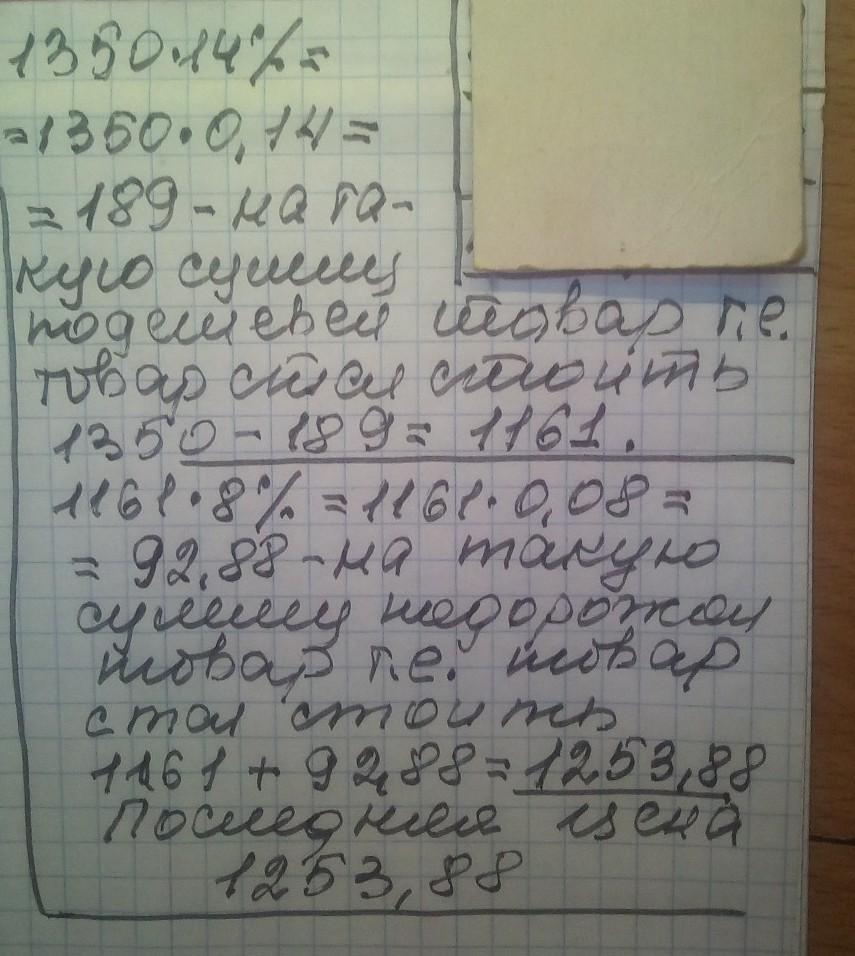 1350·14%=
=1350·0,14=
=189-на та-
кую сумму
подешевел товар т.е.
товар стал стоить
1350-189=1161.
1161·8%=1161·0,08=
=92,88-на такую
сумму подорожал
товар т.е. товар
стал стоить
1161+92,88=1253,88
Последняя цена
1253,88